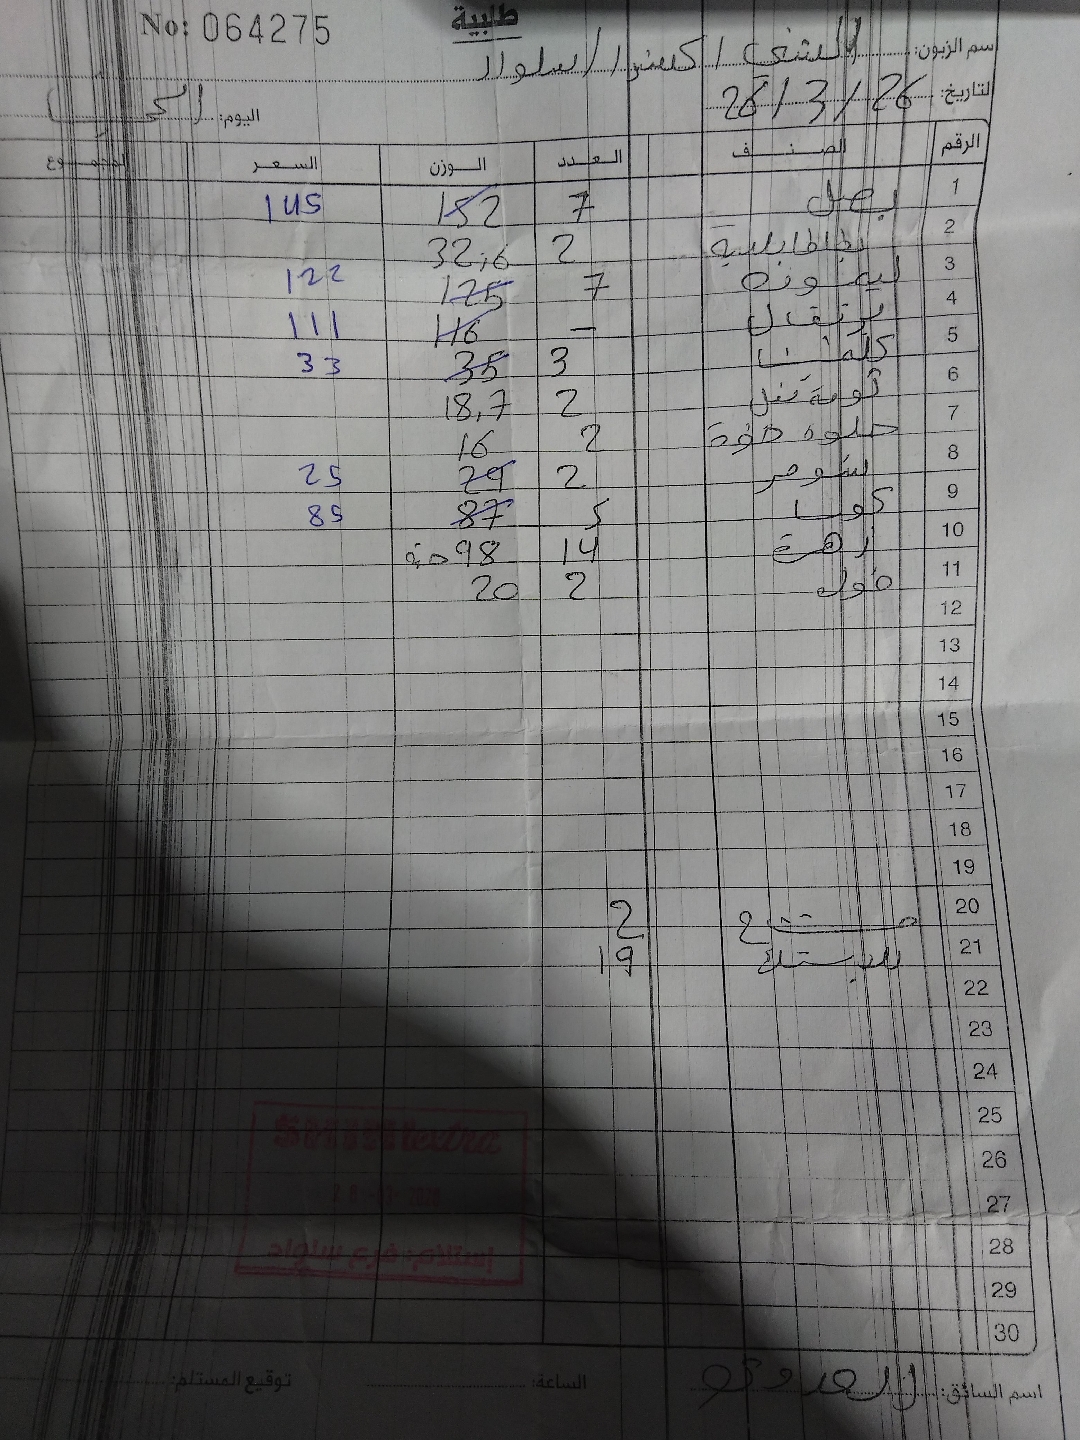 طلبية
No: 064275
اسم الزبون: الشني / اكسترا / سلواد
التاريخ: 26/3/26
اليوم:
الرقم الصنف العدد الوزن السعر المجموع
1 بصل 7 152 145
2 بطاطا بلدية 2 32,6
3 ليمونه 7 125 122
4 برتقال – 116 111
5 كلمنتينا 3 35 33
6 2 18,7
7 حلوه 2 16
8 شومر 2 29 25
9 كوسا 5 87 85
10 زهرة 14 98 حبة
11 فول 2 20
12
13
14
15
16
17
18
19
20 2
21 بلاستك 19
22
23
24
25
26
27
28
29
30
إستلام: فرع سلواد
اسم السائق: الساعة: توقيع المستلم: